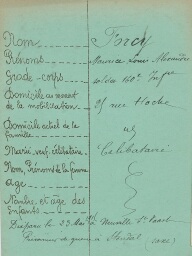 Nom Précy
Prénoms Maurice Louis Alexandre
Grade - corps soldat 160e Infrie
Domicile au moment
de la mobilisation 31 rue Hoche
Domicile actuel de la
famille id
Marié, veuf, célibataire Célibataire
Nom, Prénoms de la femme
Age
Nombre et âge des
Enfants
Disparu le 23 Mai à Neuville St Vaast
Prisonnier de guerre à Stendal (1915)